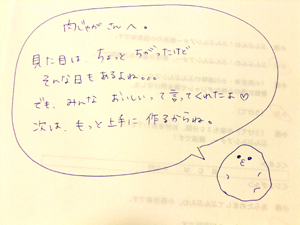 肉じゃがさんへ。
見た目は、ちょっとちがったけど
そんな日もあるよね。。。
でも、みんな おいしいって言ってくれたよ♡
次は、もっと上手に作るからね。